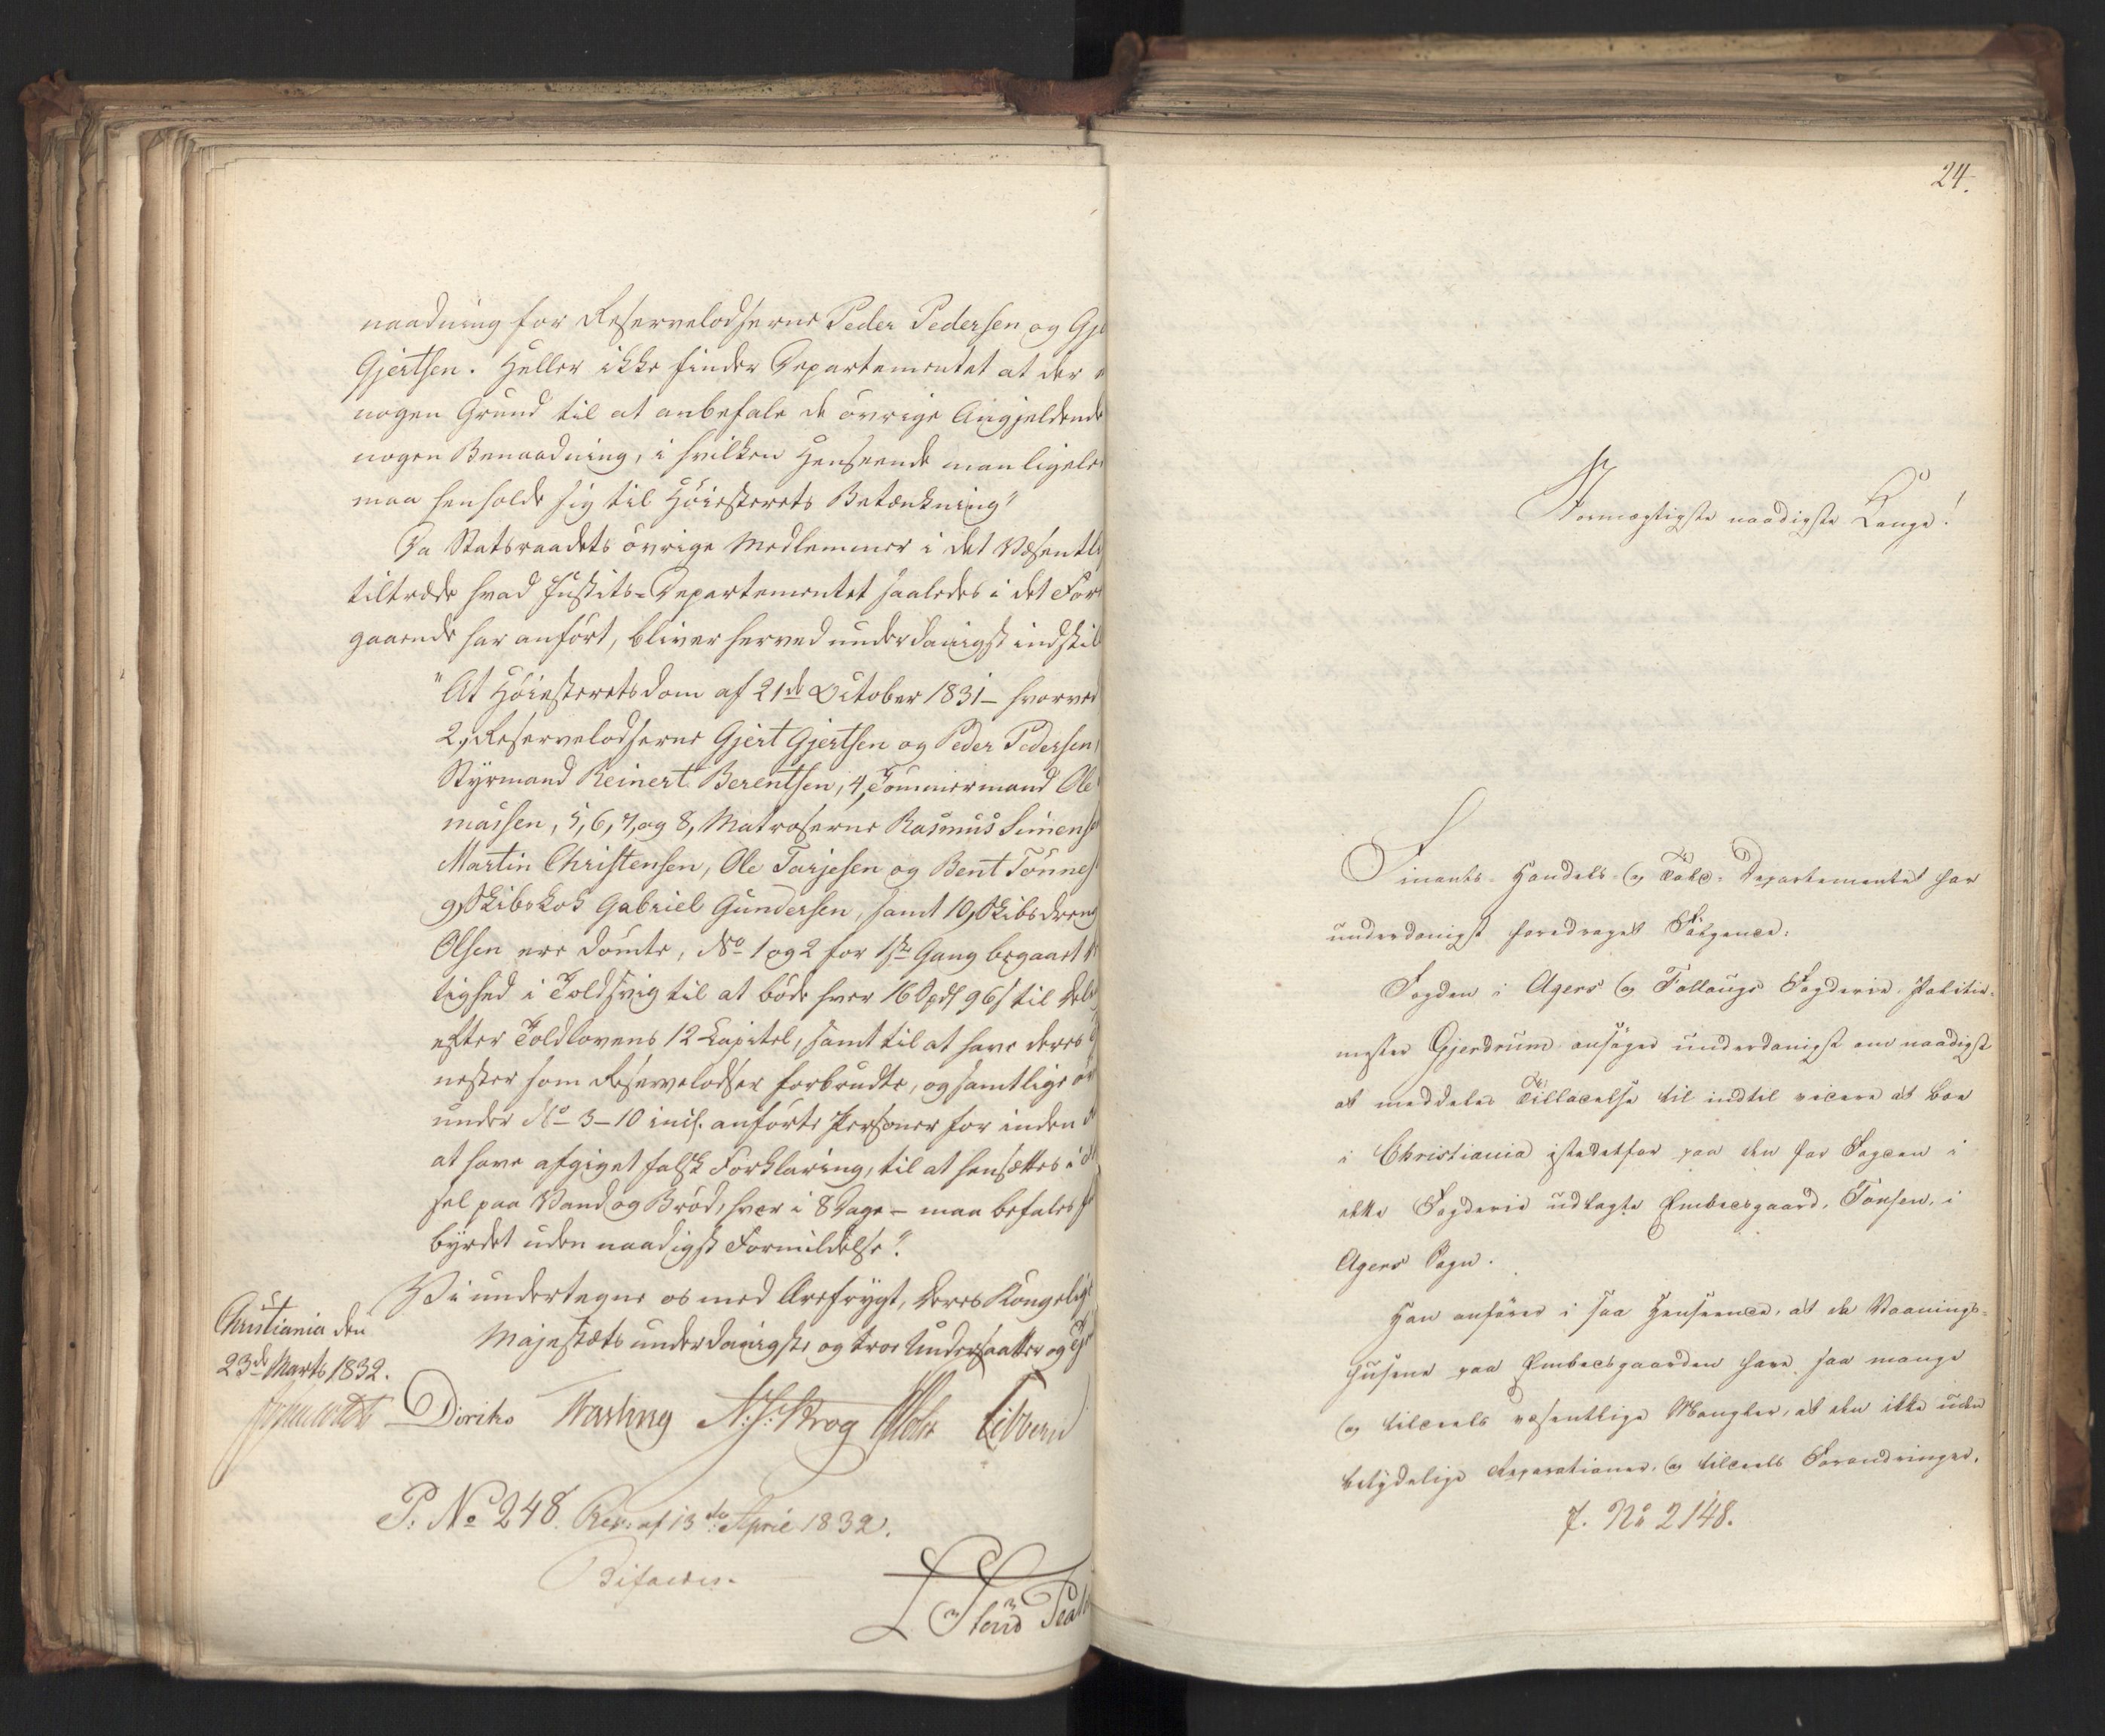 naadning for Reservelodserne Peder Pedersen og Gje
Gjertsen. Heller ikke finder Departementet at der e
nogen Grund til at anbefale de øvrige Angjeldende
nogen Benaadning, i hvilken Henseende man ligele
maa henholde sig til Høiesterets Betænkning"
Da Statsraadets øvrige Medlemmer i det Væsentli
tiltræde hvad Justits-Departementet saaledes i det For
gaaende har anført, bliver herved underdanigst indstil
"At Høiesteretsdom af 21de October 1831 – hvorved
2, Reservelodserne Gjert Gjertsen og Peder Pedersen,
Styrmand Reinert Berentsen, 4, Tømmermand Ole
massen, 5, 6, 7, og 8, Matroserne Rasmus Simense
Martin Christensen, Ole Tarjesen og Bent Tønnes
9, Skibskok Gabriel Gundersen, samt 10, Skibsdreng
Olsen ere dømte, No 1 og 2 for 1ste Gang begaaet
tighed i Toldsvig til at bøde hver 16 Spd 96 s til
efter Toldlovens 12 Capitel, samt til at have deres
nester som Reservelodser forbrudte, og samtlige øv
under No 3–10 incl. anførte Personer for inden
at have afgivet falsk Forklaring, til at hensættes i
sel paa Vand og Brød, hver i 8 Dage – maa befales
byrdet uden naadigst Formildelse".
Vi undertegne os med Ærefrygt, Deres Kongelige
Majestæts underdanigste og troe Undersaatter og
Christiania den
23de Marts 1832.
Diriks Fasting N. J. Krog Holst Sibbern
P. No 248. Res: af 13de April 1832.
Bifaldes.
24.
Stormægtigste naadigste Konge!
Finants- Handels- og Told-Departementet har
underdanigst foredraget Følgende:
Fogden i Agers og Follougs Fogderie, Politie-
mester Gjerdrum ansøger underdanigst om naadigst
at meddeles Tilladelse til indtil videre at boe
i Christiania istedetfor paa den for Fogden i
dette Fogderie udlagte Embedsgaard, Tonsen, i
Agers Sogn.
Han anfører i saa Henseende, at de Vaanings-
husene paa Embedsgaarden have saa mange
og tildeels væsentlige Mangler, at den ikke uden
betydelige Reparationer, og tildeels Forandringer,
J. No 2148.